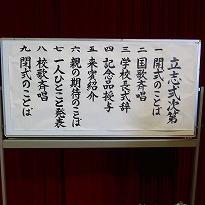 立志式次第
一 開式のことば
二 国歌斉唱
三 学校長式辞
四 記念品授与
五 来賓紹介
六 親の期待のことば
七 一人ひとこと発表
八 校歌斉唱
九 閉式のことば